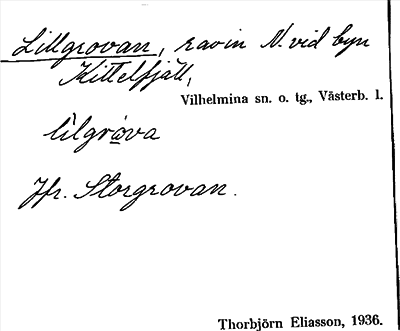 Lillgrovan, ravin N. vid byn
Kittelfjäll,
Vilhelmina sn. o. tg., Västerb. l.
lìlgròva
Jfr. Storgrovan.
Thorbjörn Eliasson, 1936.